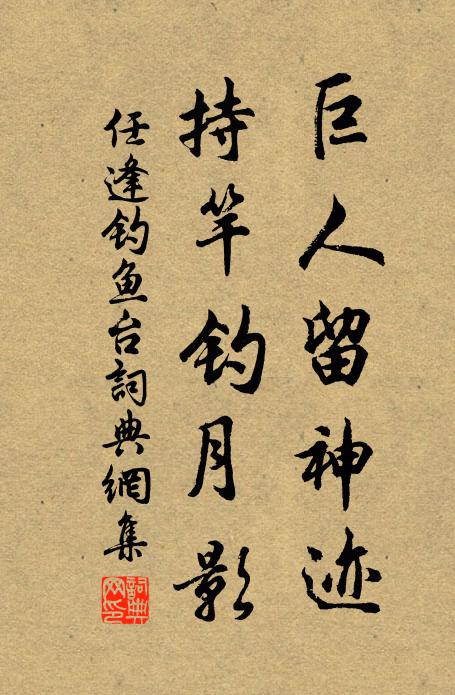 巨人留神迹
持竿钓月影
任逢钓鱼台詞典網集
詞典网印